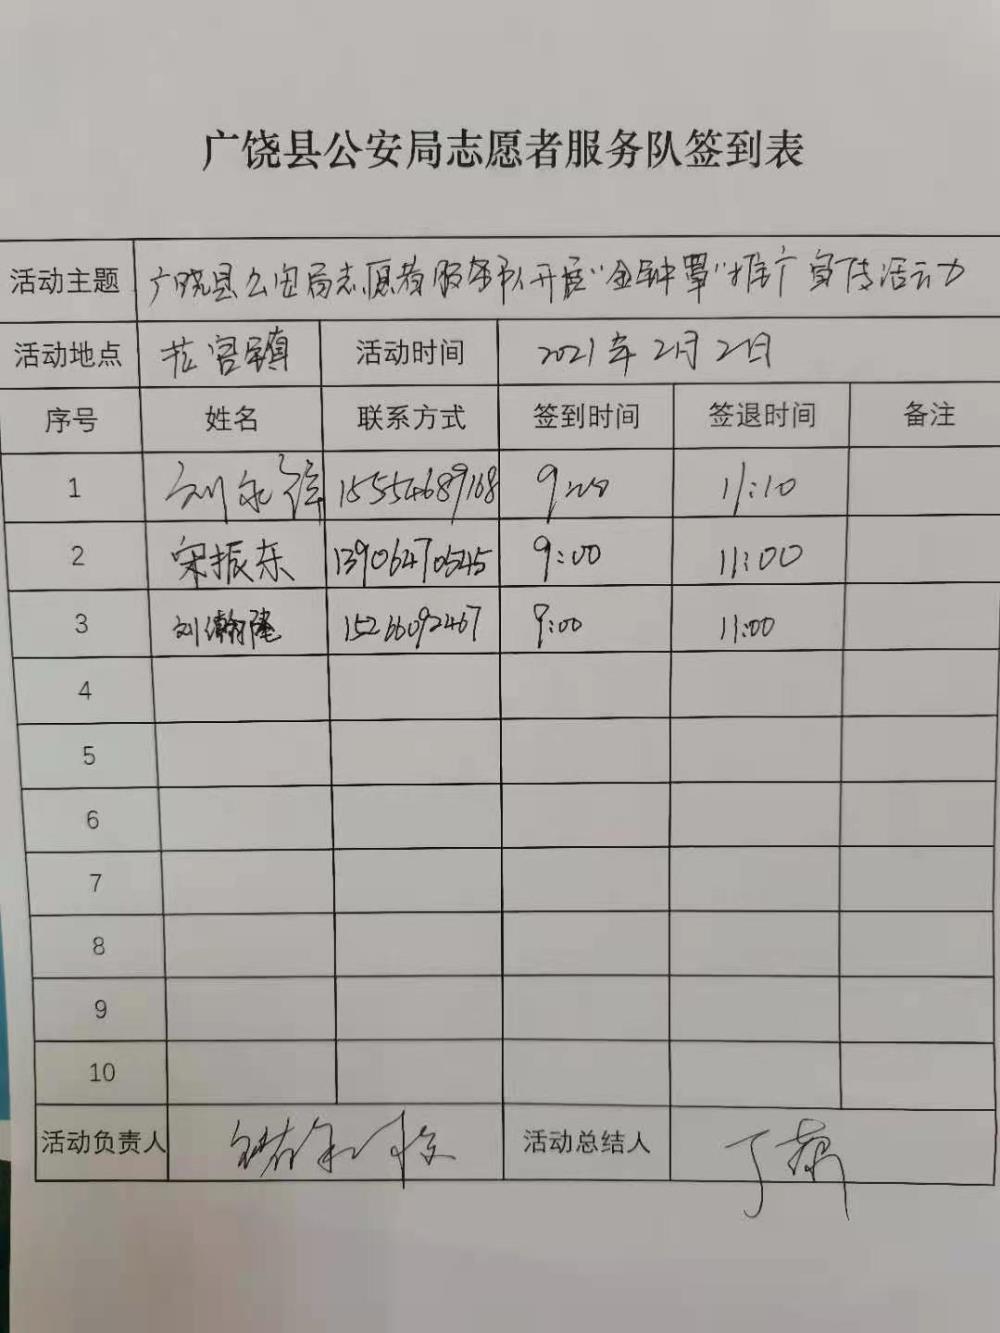 广饶县公安局志愿者服务队签到表
活动主题 广饶县公安局志愿者服务队开展“金钟罩”推广宣传活动
活动地点 花官镇 活动时间 2021年2月2日
序号 姓名 联系方式 签到时间 签退时间 备注
1 刘永 15554689168 9:00 11:10
2 宋振东 13906470545 9:00 11:00
3 刘瀚隆 15266092467 9:00 11:00
4
5
6
7
8
9
10
活动负责人 活动总结人 丁